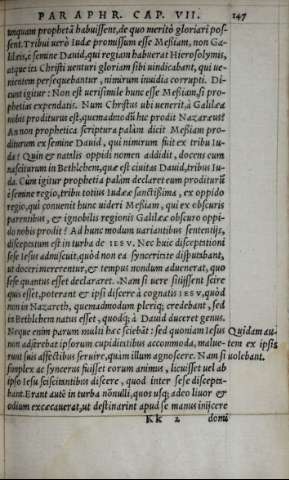 PARAPHR. CAP. VII. 147
unquam prophetã habuissent, de quo meritò gloriari pos-
sent. Tribui uerò Iudæ promissum esse Meßiam, non Ga-
lilæis, è semine Dauid, qui regiam habuerat Hierosolymis,
atque ita Christi uenturi gloriam sibi uindicabant, qui ue-
nientem persequebantur, nimirum inuidia corrupti. Di-
cunt igitur: Non est uerisimile hunc esse Meßiam, si pro-
phetias expendatis. Num Christus ubi uenerit, à Galilæa
nobis proditurus est, quemadmodũ hic prodit Nazareus?
An non prophetica scriptura palàm dicit Meßiam pro-
diturum ex semine Dauid, qui nimirum fuit ex tribu Iu-
da? Quin & natalis oppidi nomen addidit, docens eum
nasciturum in Bethlehem, quæ est ciuitas Dauid, tribus Iu-
da. Cùm igitur prophetia palàm declaret eum proditurũ
è semine regio, tribu totius Iudææ sanctißima, ex oppido
regio, qui conuenit hunc uideri Meßiam, qui ex obscuris
parentibus, & ignobilis regionis Galilææ obscuro oppi-
do nobis prodit? Ad hunc modum uariantibus sententijs,
disceptatum est in turba de IESV. Nec huic disceptationi
sese Iesus admiscuit, quòd non ea synceriter disputabant,
ut doceri mererentur, & tempus nondum aduenerat, quo
sese quantus esset declararet. Nam si uere sitijssent scire
quis esset, poterant & ipsi discere à cognatis IESV, quòd
non in Nazareth, quemadmodum pleriq; credebant, sed
in Bethlehem natus esset, quodq; à Dauid duceret genus.
Neque enim parum multi hæc sciebãt: sed quoniam Iesus Quidam au-
non adserebat ipsorum cupiditatibus accommoda, malue- tem ex ipsis
runt suis affectibus seruire, quàm illum agnoscere. Nam si uolebant.
simplex ac syncerus fuisset eorum animus, licuisset uel ab
ipso Iesu sciscitantibus discere, quod inter sese discepta-
bant. Erant autẽ in turba nõnulli, quos usq; adeo liuor &
odium excæcauerat, ut destinarint apud se manus inijcere
KK 2 domi